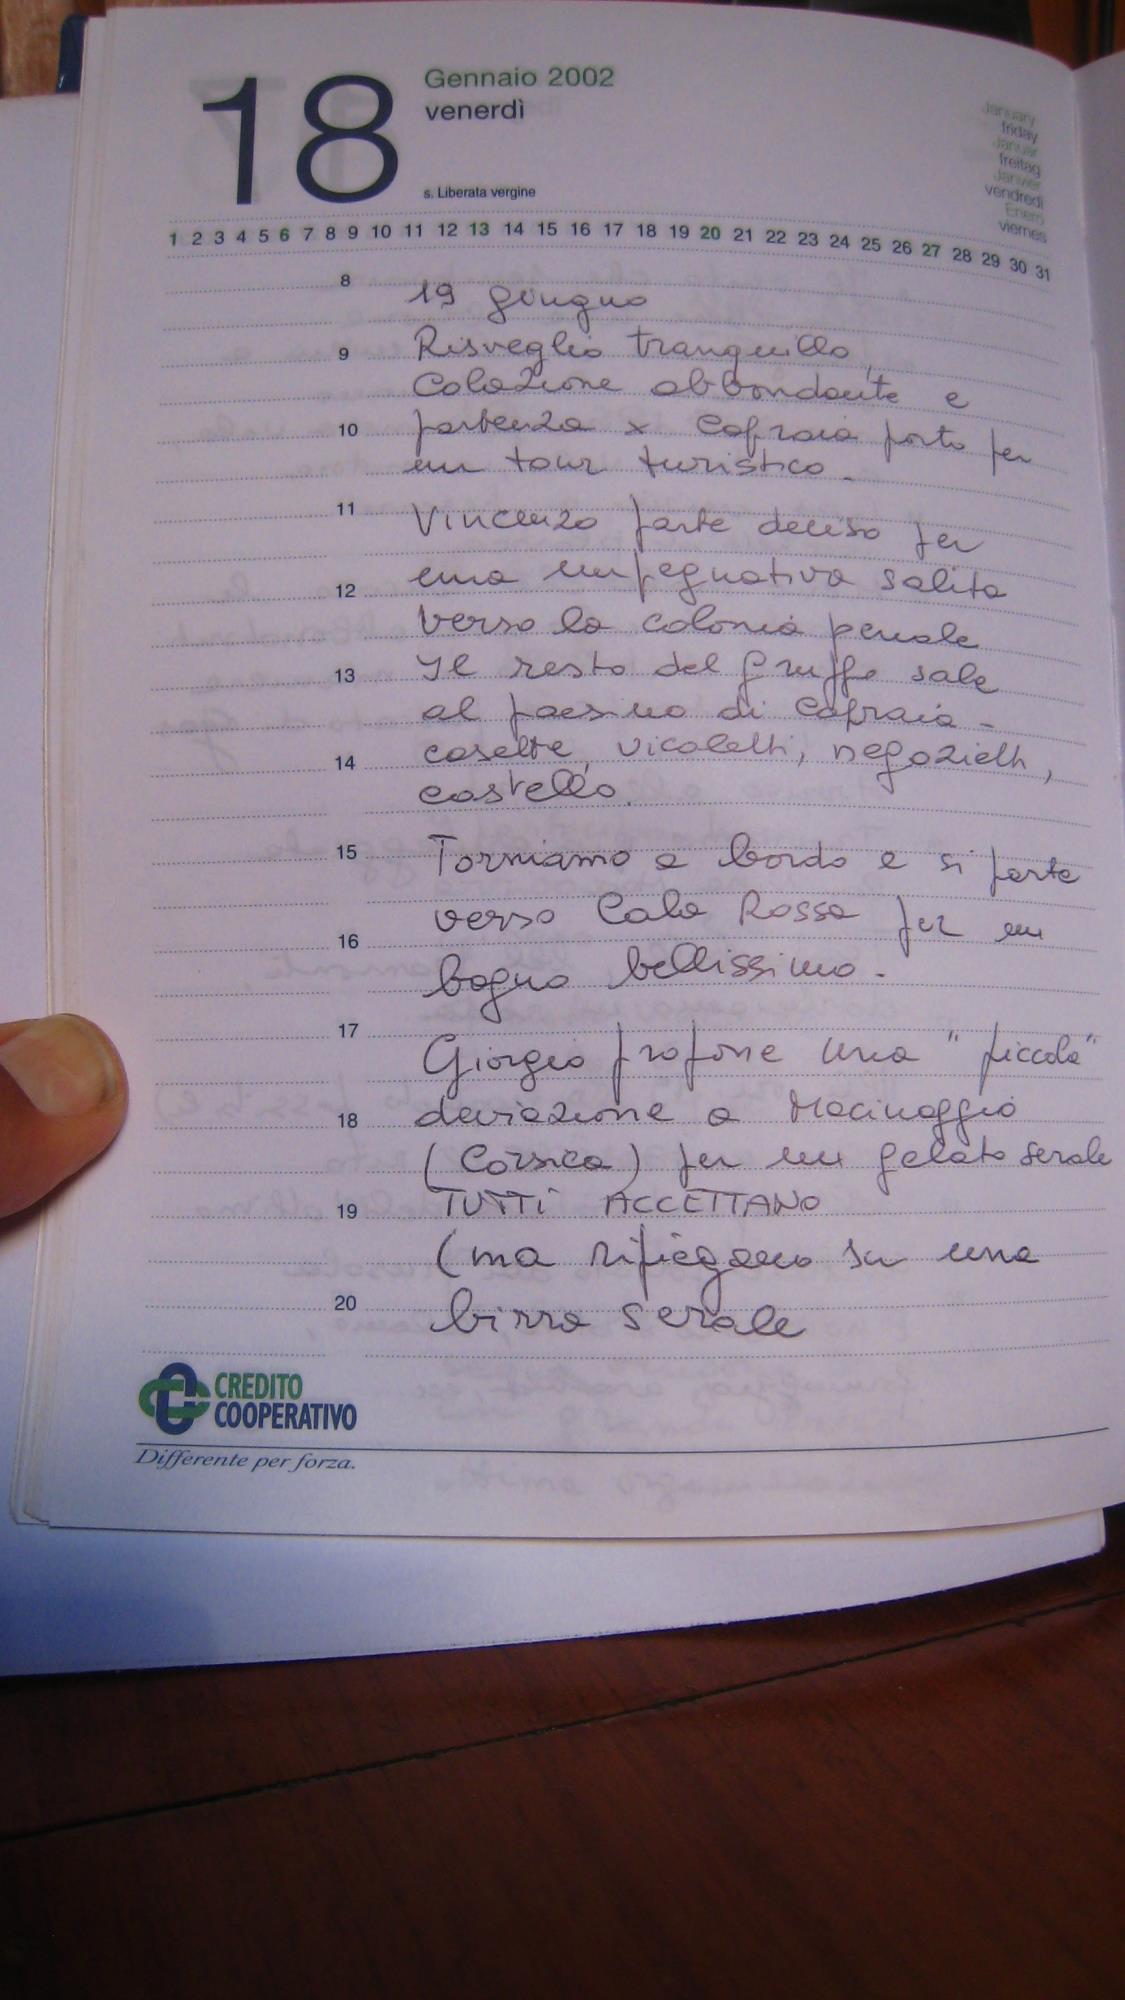 18
Gennaio 2002
venerdì
s. Liberata vergine
January
friday
Januar
freitag
Janvier
vendredi
Enero
viernes
1 2 3 4 5 6 7 8 9 10 11 12 13 14 15 16 17 18 19 20 21 22 23 24 25 26 27 28 29 30 31
8
19 giugno
9 Risveglio tranquillo,
Colazione abbondante e
10 partenza x Capraia porto per
un tour turistico.
11 Vincenzo parte deciso per
12 una impegnativa salita
verso la colonia penale
13 Il resto del gruppo sale
al paesino di Capraia -
14 casette, vicoletti, negozietti,
castello.
15 Torniamo a bordo e si parte
verso Cala Rossa per un
16
bagno bellissimo.
17
Giorgio propone una "piccola"
18 deviazione a Macinaggio
(Corsica) per un gelato serale
19 TUTTI ACCETTANO
(ma ripiegano su una
20 birra serale
CREDITO
COOPERATIVO
Differente per forza.